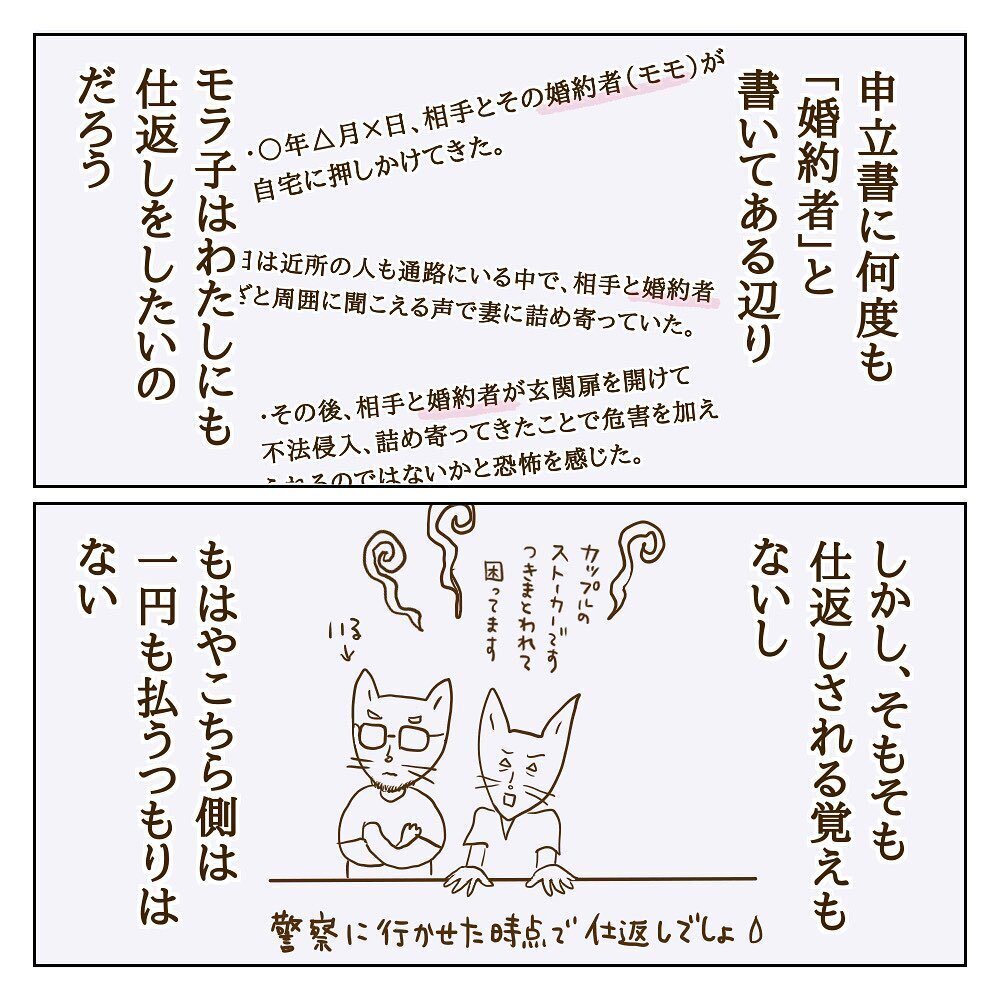 申立書に何度も
「婚約者」と
書いてある辺り
・〇年△月×日、相手とその婚約者（モモ）が
自宅に押しかけてきた。
日は近所の人も通路にいる中で、相手と婚約者
ざと周囲に聞こえる声で妻に詰め寄っていた。
・その後、相手と婚約者が玄関扉を開けて
不法侵入、詰め寄ってきたことで危害を加え
られるのではないかと恐怖を感じた。
モラ子はわたしにも
仕返しをしたいの
だろう
しかし、そもそも
仕返しされる覚えも
ないし
カップルの
ストーカーです
つきまとわれて
困ってます
いる
もはやこちら側は
一円も払うつもりは
ない
警察に行かせた時点で仕返しでしょ